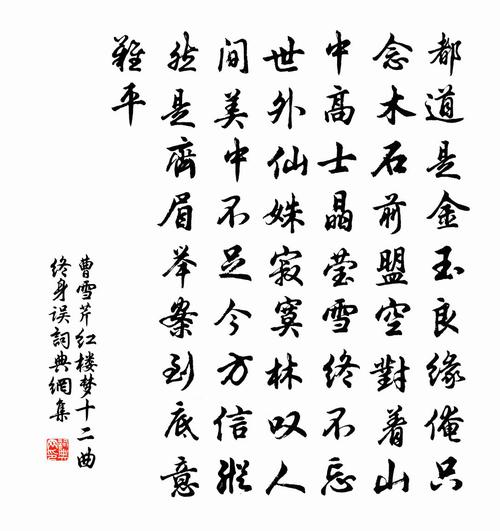 都道是金玉良缘俺只
念木石前盟空對着山
中高士晶莹雪终不忘
世外仙姝寂寞林叹人
间美中不足今方信縱
然是齊眉举案到底意
難平
曹雪芹红楼梦十二曲
终身误詞典網集